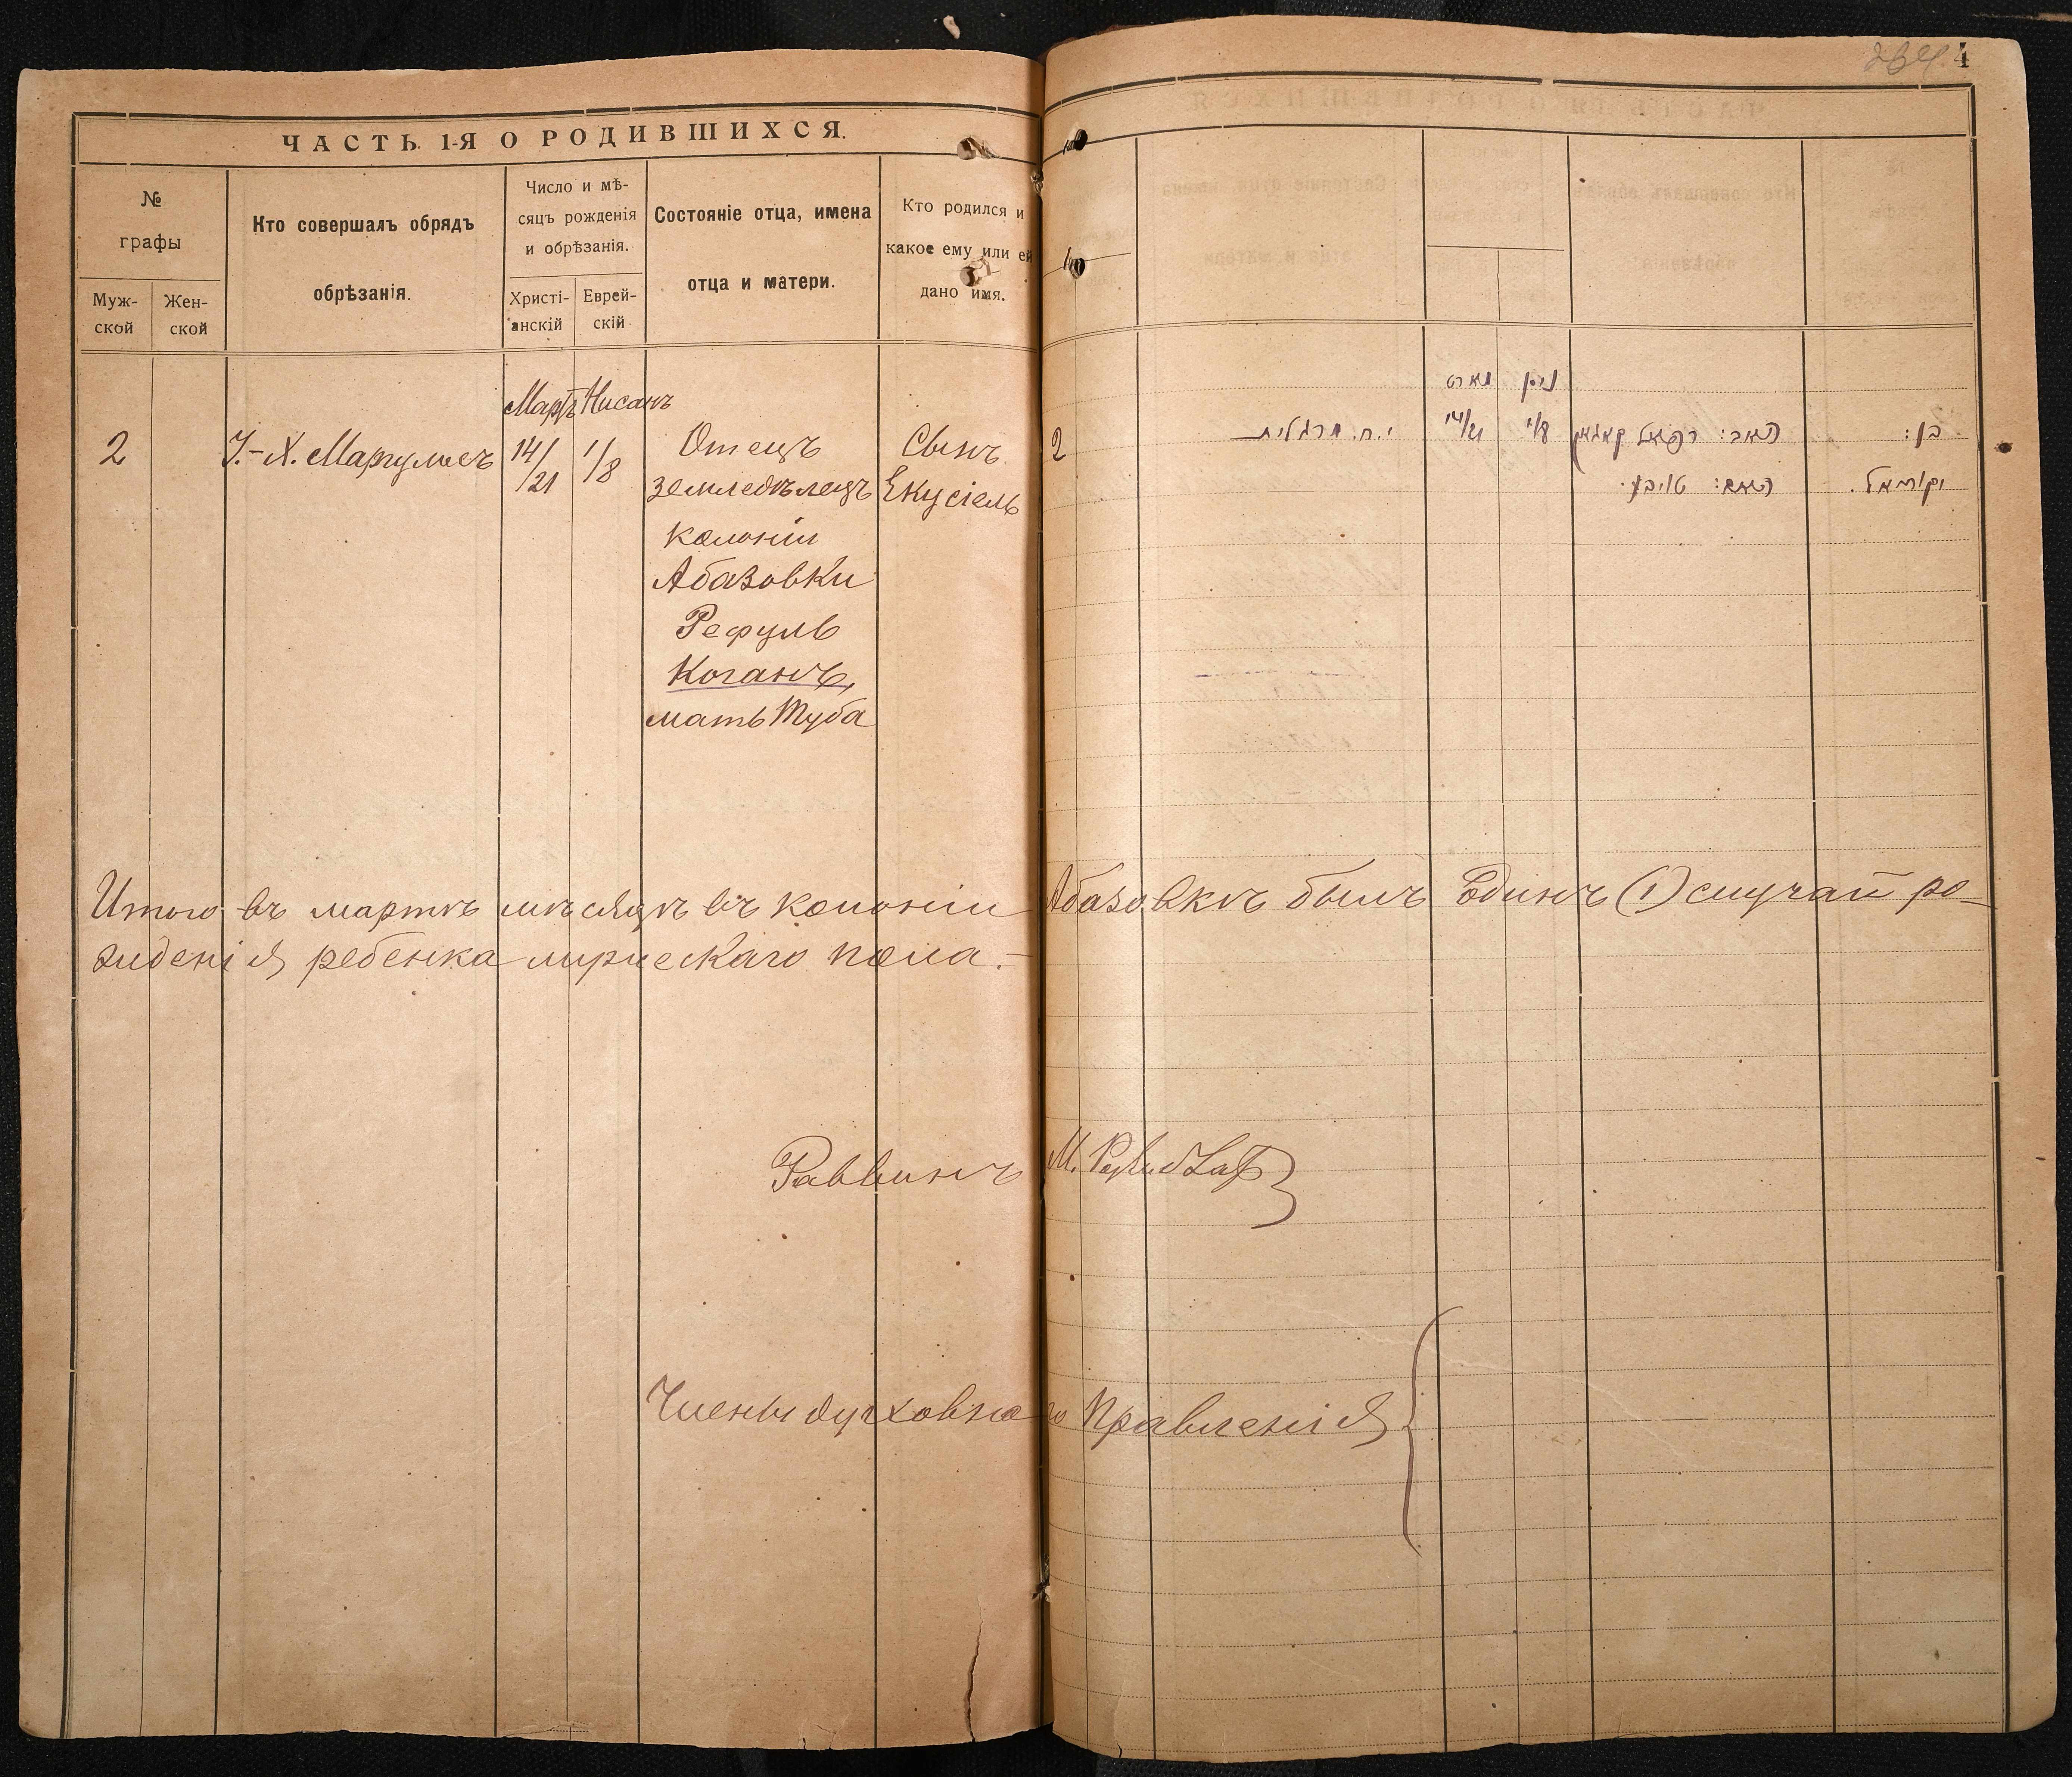 ЧАСТЬ 1-Я О РОДИВШИХСЯ.
№
графы
Муж-
ской
Жен-
ской
Кто совершалъ обрядъ
обрѣзанія.
Число и мѣ-
сяцъ рожденія
и обрѣзанія.
Христі-
анскій
Еврей-
скій
Состояніе отца, имена
отца и матери.
Кто родился и
какое ему или ей
дано имя.
Мартъ Нисанъ
2
І.-Х. Маргулисъ
14/21
1/8
Отецъ
земледѣлецъ
колоніи
Абазовки
Рефуль
Коганъ,
мать Туба
Сынъ
Екусіель
4
2
מארט
ניסן
י.ח. מרגלית
14/21
1/8
האב: רפאל קאגאן
האם: טויבע.
בן:
יקותיאל.
Итого въ мартѣ мѣсяцѣ въ колоніи Абазовкѣ былъ Единъ (1) случай ро-
жденія ребенка мужескаго пола.-
Раввинъ М.
Члены духовнаго Правленія